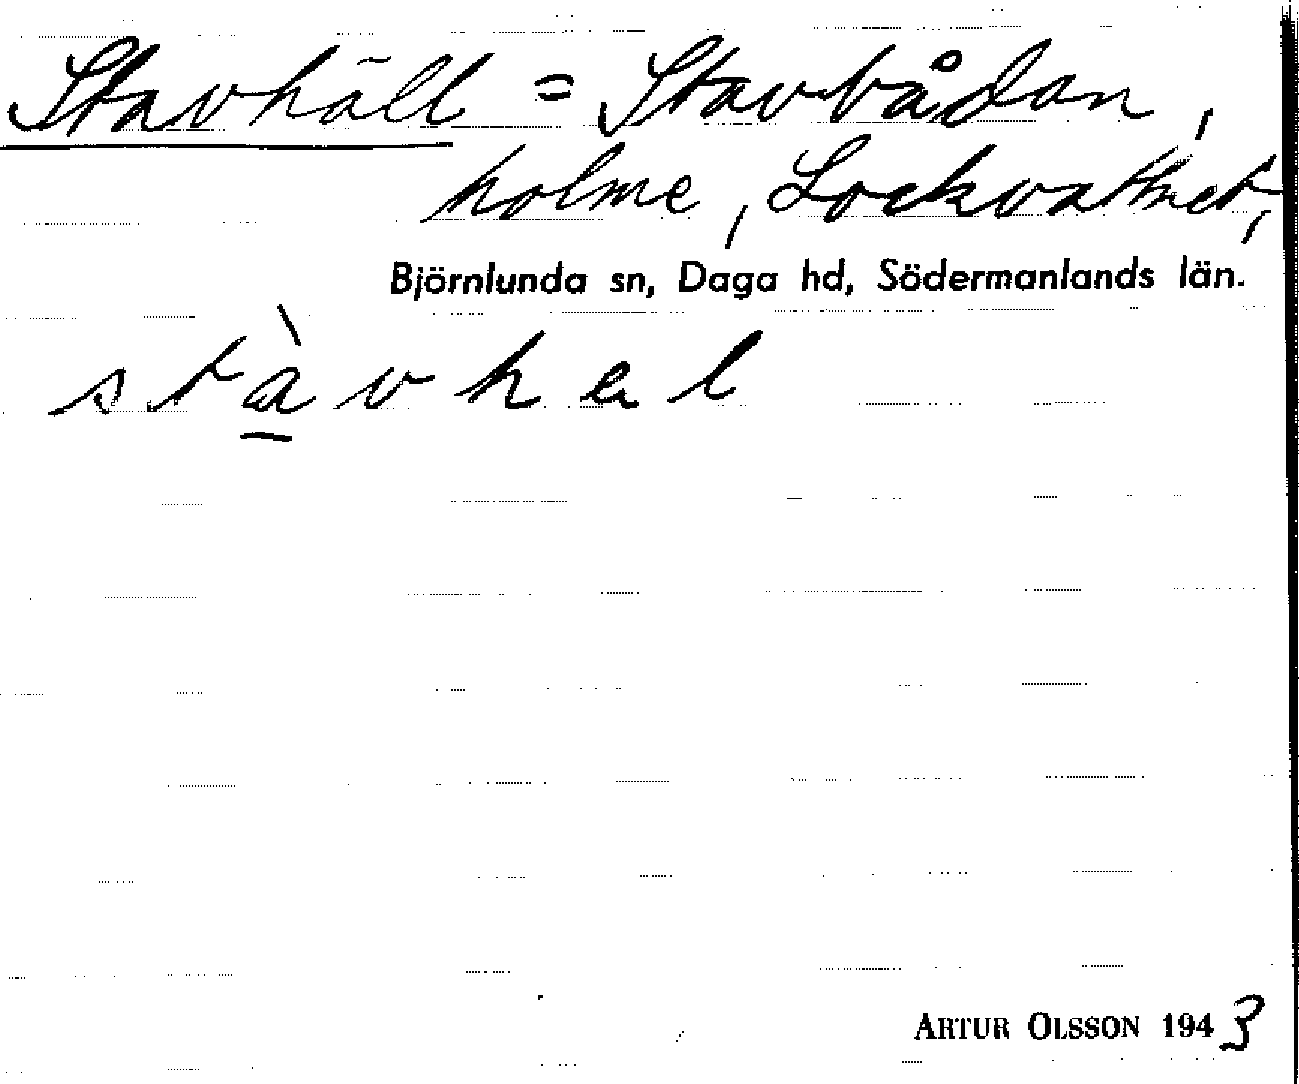 Stavhäll = Stavbådan,
holme, Lockvattnet,
Björnlunda sn, Daga hd, Södermanlands län.
stàvhel
ARTUR OLSSON 1943